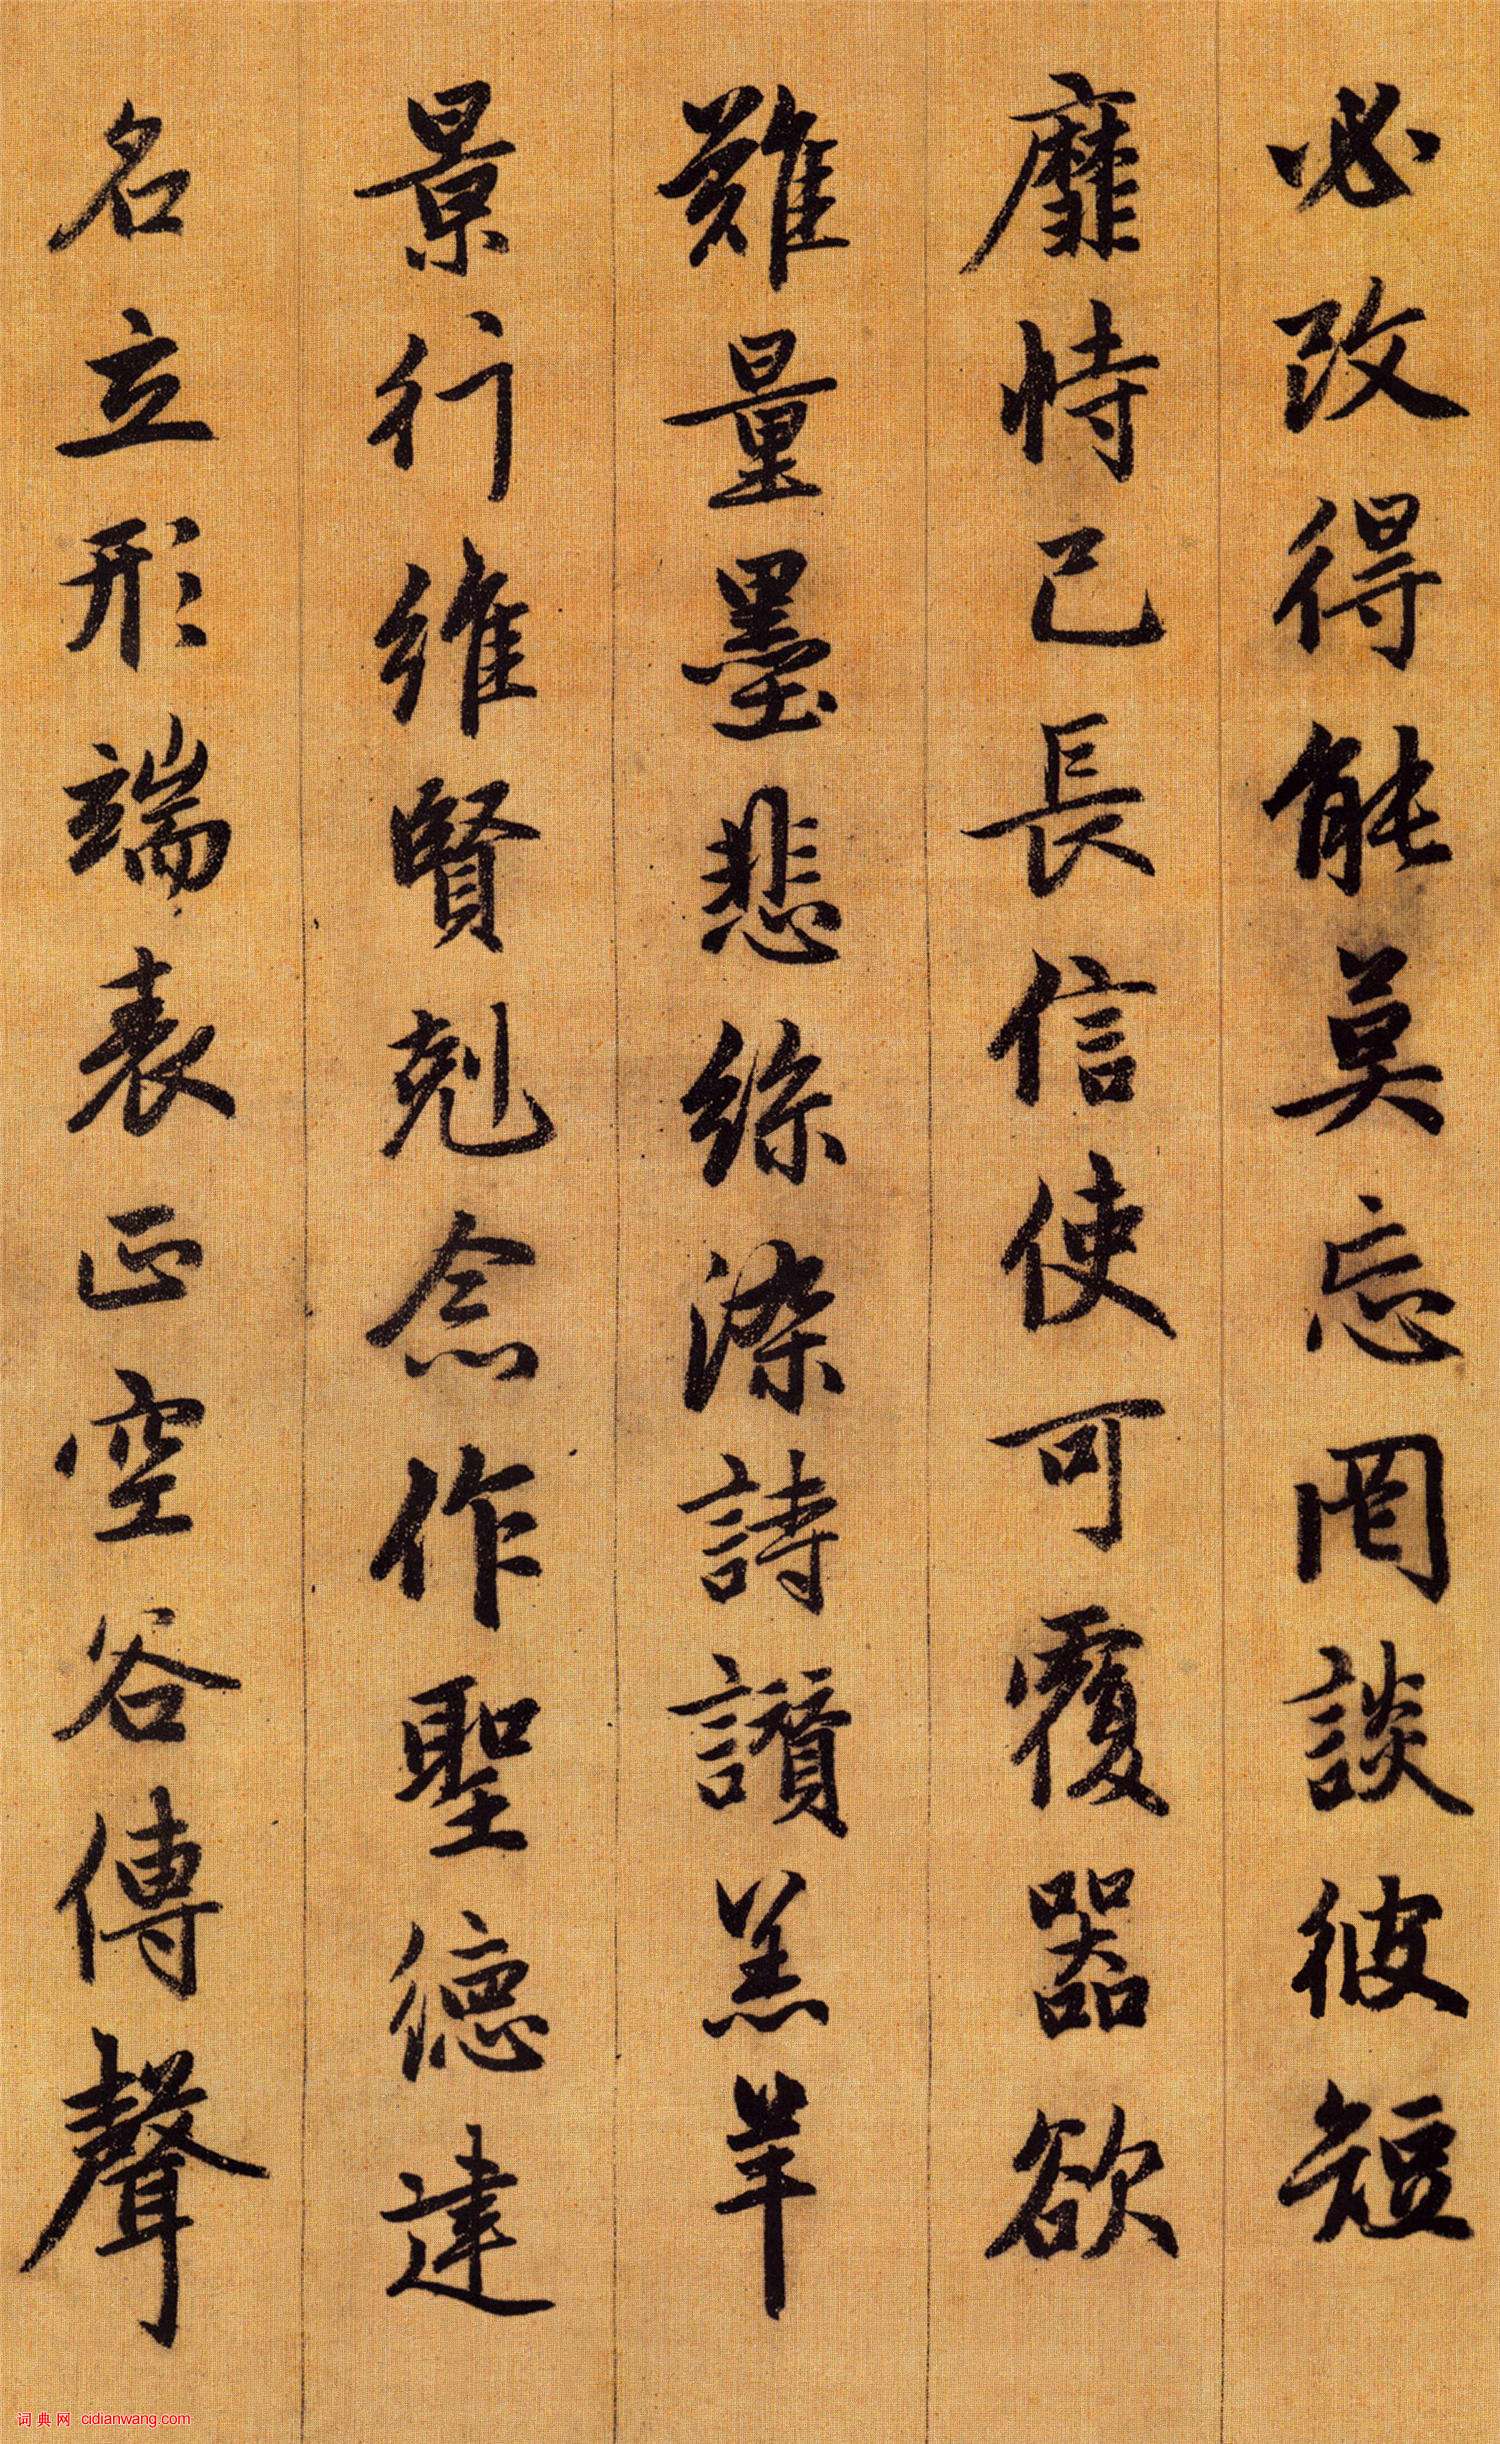 必改得能莫忘罔談彼短
靡恃己長信使可覆器欲
難量墨悲絲染詩讃羔羊
景行維賢剋念作聖德建
名立形端表正空谷傳聲
词典网 cidianwang.com